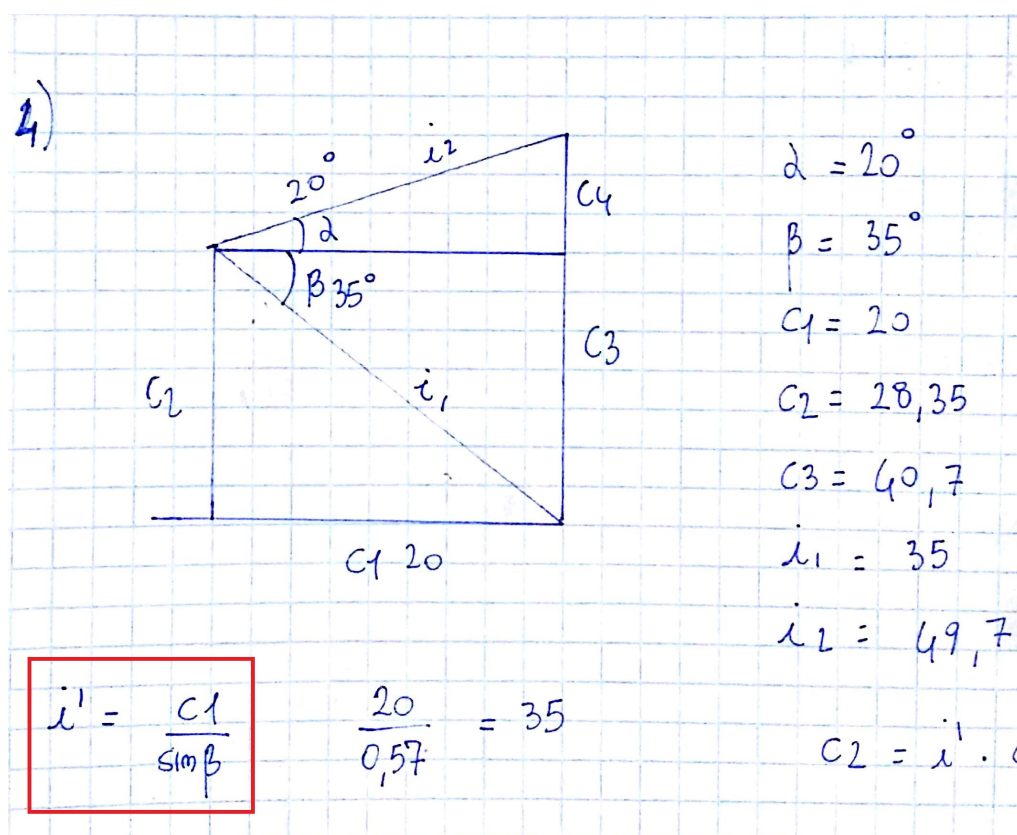 4)
20° i2
α
β 35°
C4
C3
C2
i1
C1 20
α = 20°
β = 35°
C1 = 20
C2 = 28,35
C3 = 40,7
i1 = 35
i2 = 49,7
i' = C1 / sin β 20 / 0,57 = 35
C2 = i' ·